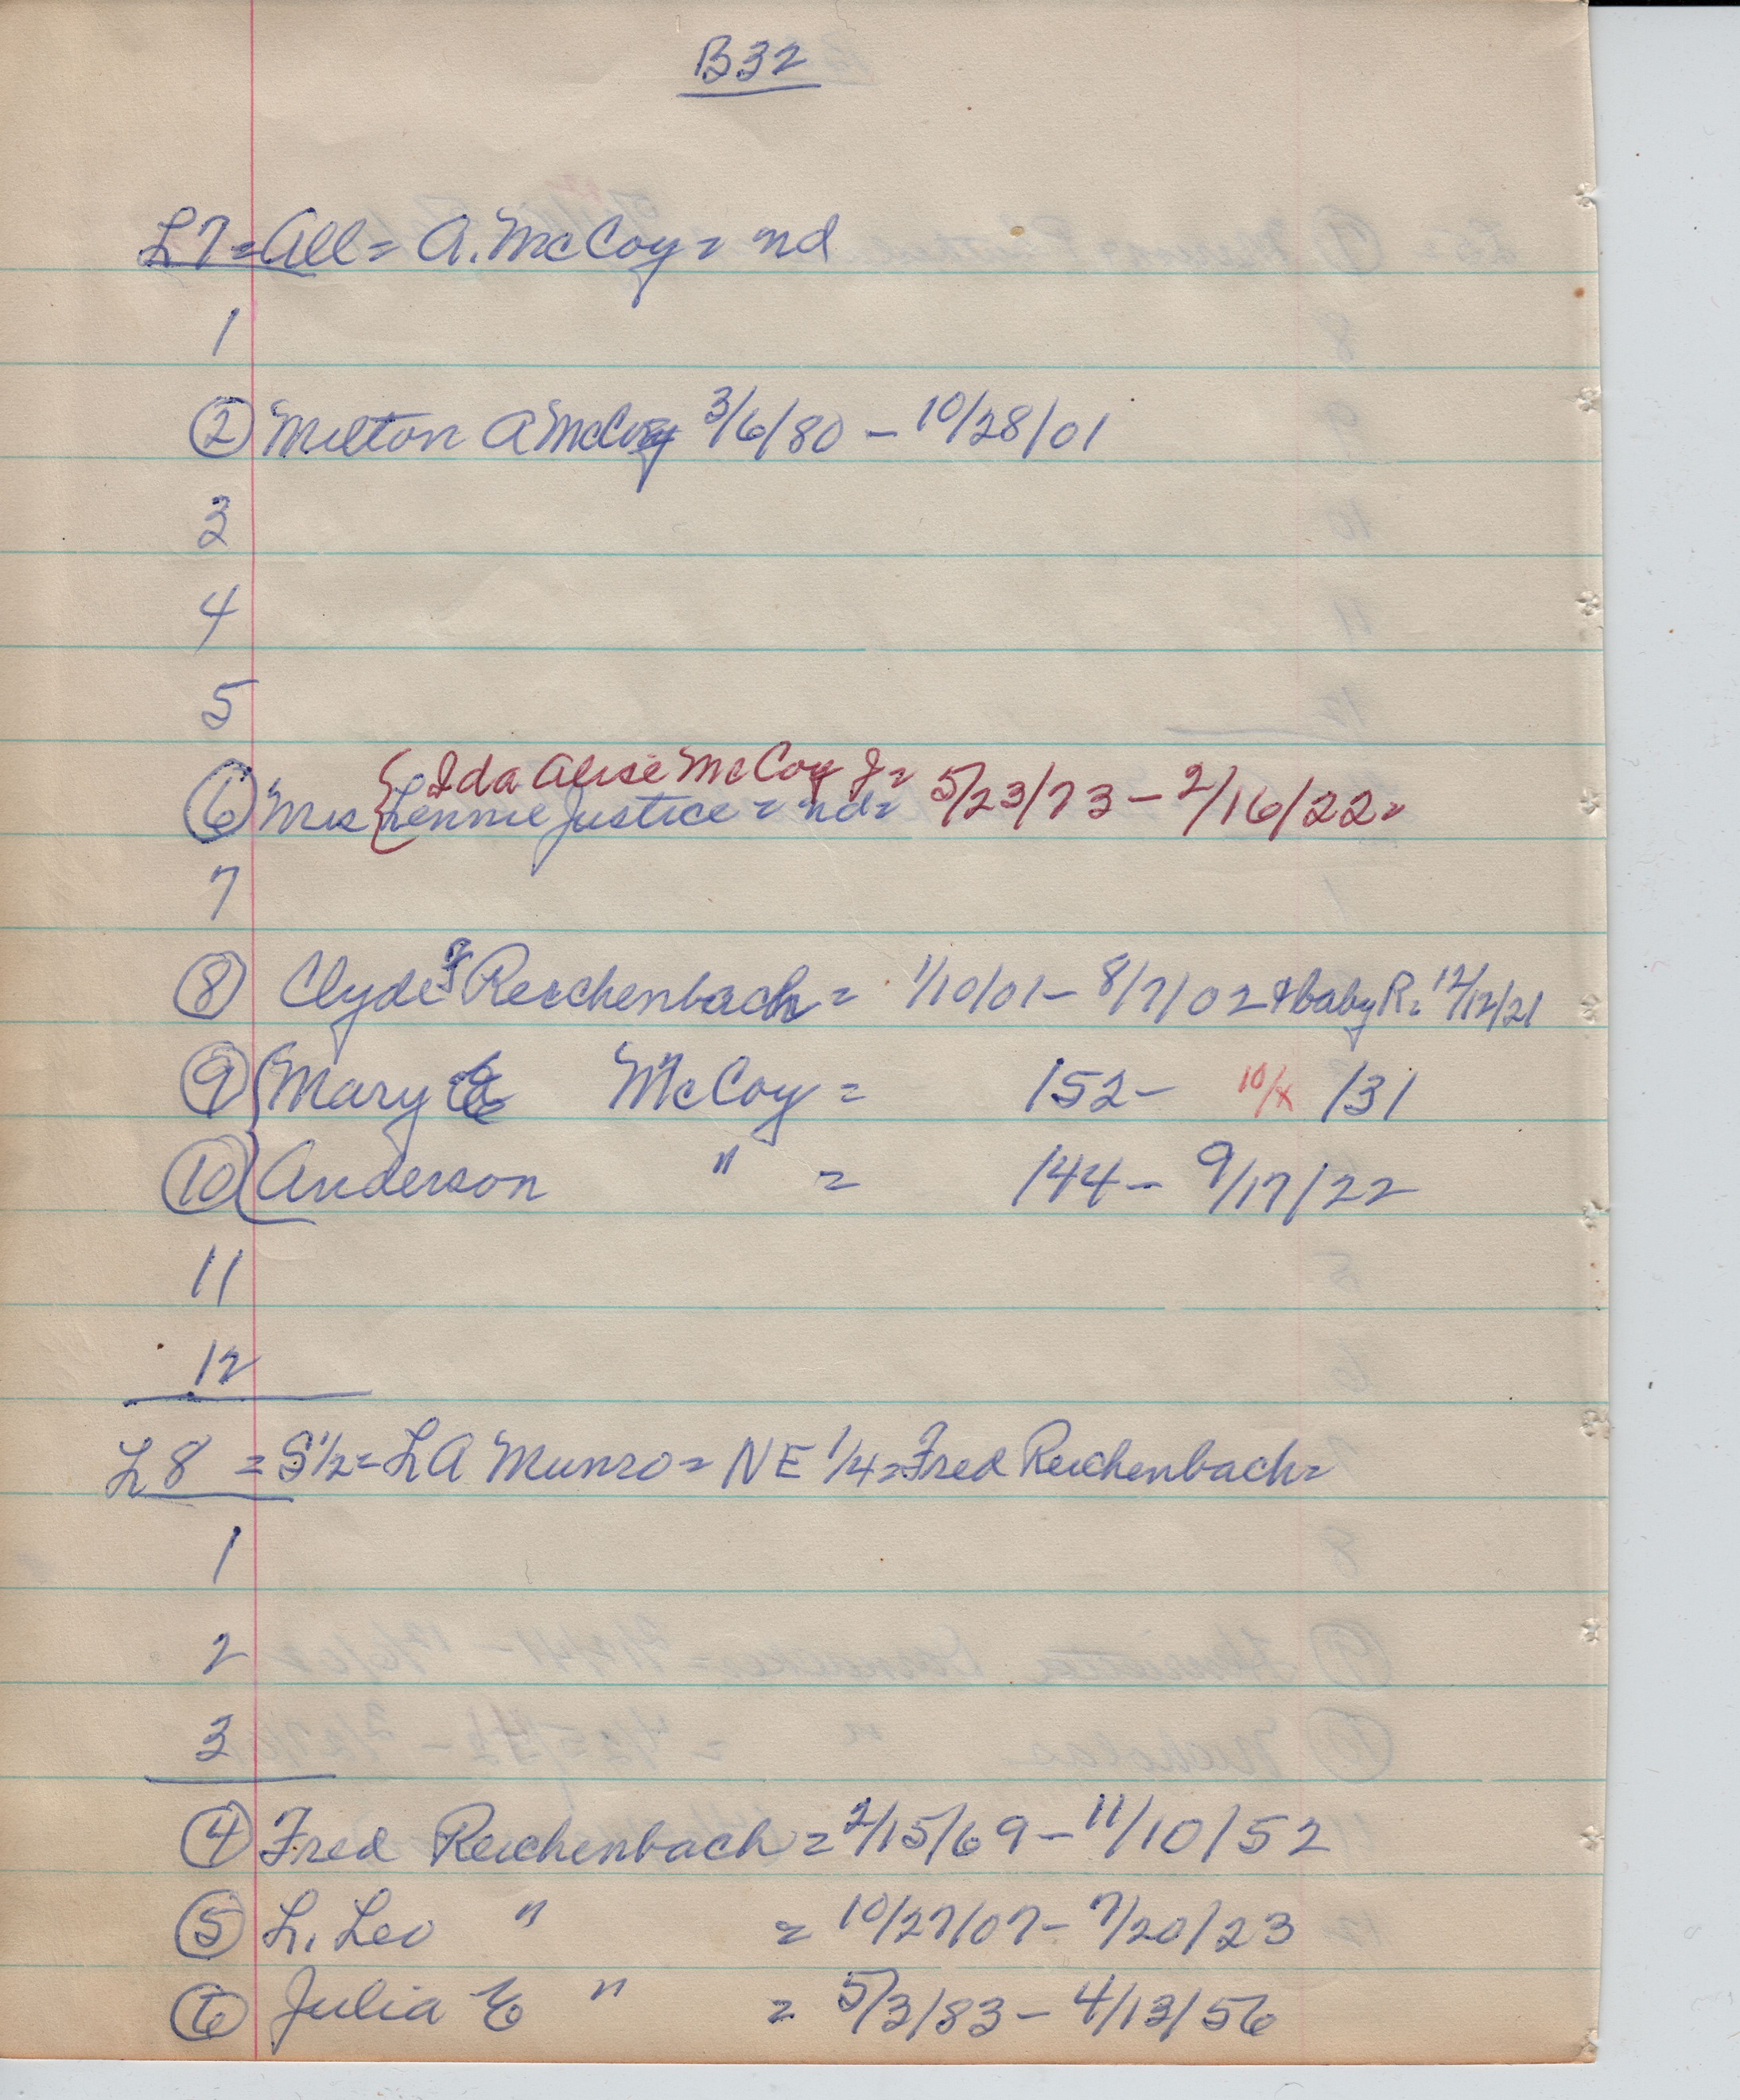 B32
L7=All= A. McCoy= nd
1
2 Milton A McCoy 3/6/80 - 10/28/01
3
4
5
{Ida Alise McCoy J= 5/23/73 - 2/16/22=
6 Mrs Lennie Justice = nd=
7
8 Clyde Reichenbach = 1/10/01 - 8/7/02 & baby R. 12/12/21
9 Mary E McCoy = 152- 10/x /31
10 Anderson " = 144- 9/17/22
11
12
L8 = S1/2= L A Munro= NE 1/4= Fred Reichenbach=
1
2
3
4 Fred Reichenbach = 2/15/69 - 11/10/52
5 L. Leo " = 10/27/07 - 7/20/23
6 Julia E " = 5/3/83 - 4/13/56